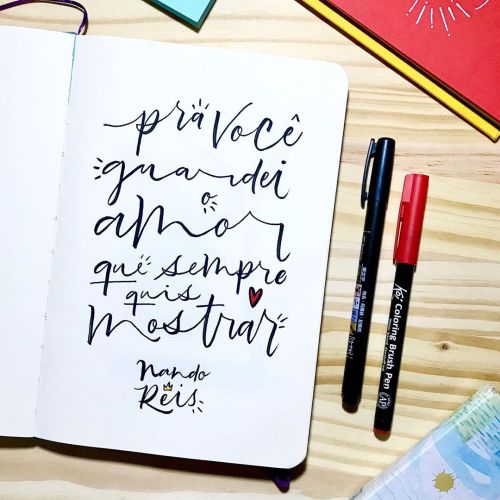 pra você
guardei
o
amor
que sempre
quis
mostrar
Nando
Reis
Koi Coloring Brush Pen
AP